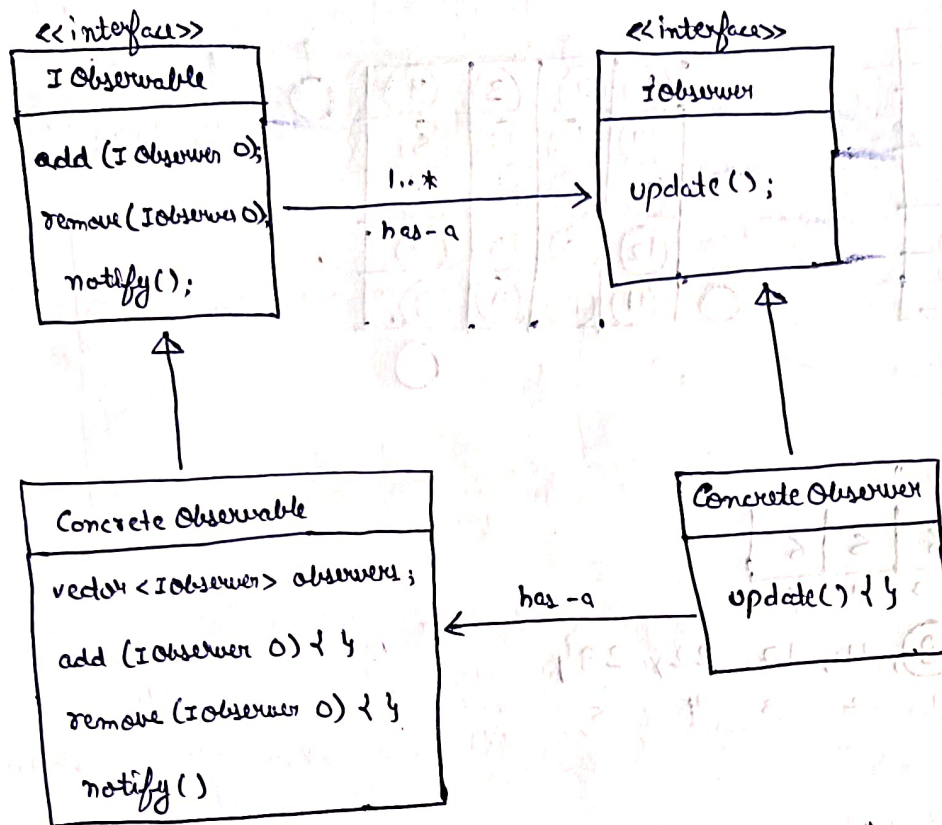 <<interface>>
I Observable
add (I Observer O);
remove (IObserver O);
notify();
1..*
has-a
<<interface>>
IObserver
update();
Concrete Observable
vector <IObserver> observers;
add (IObserver O) { }
remove (IObserver O) { }
notify()
has-a
Concrete Observer
update() { }